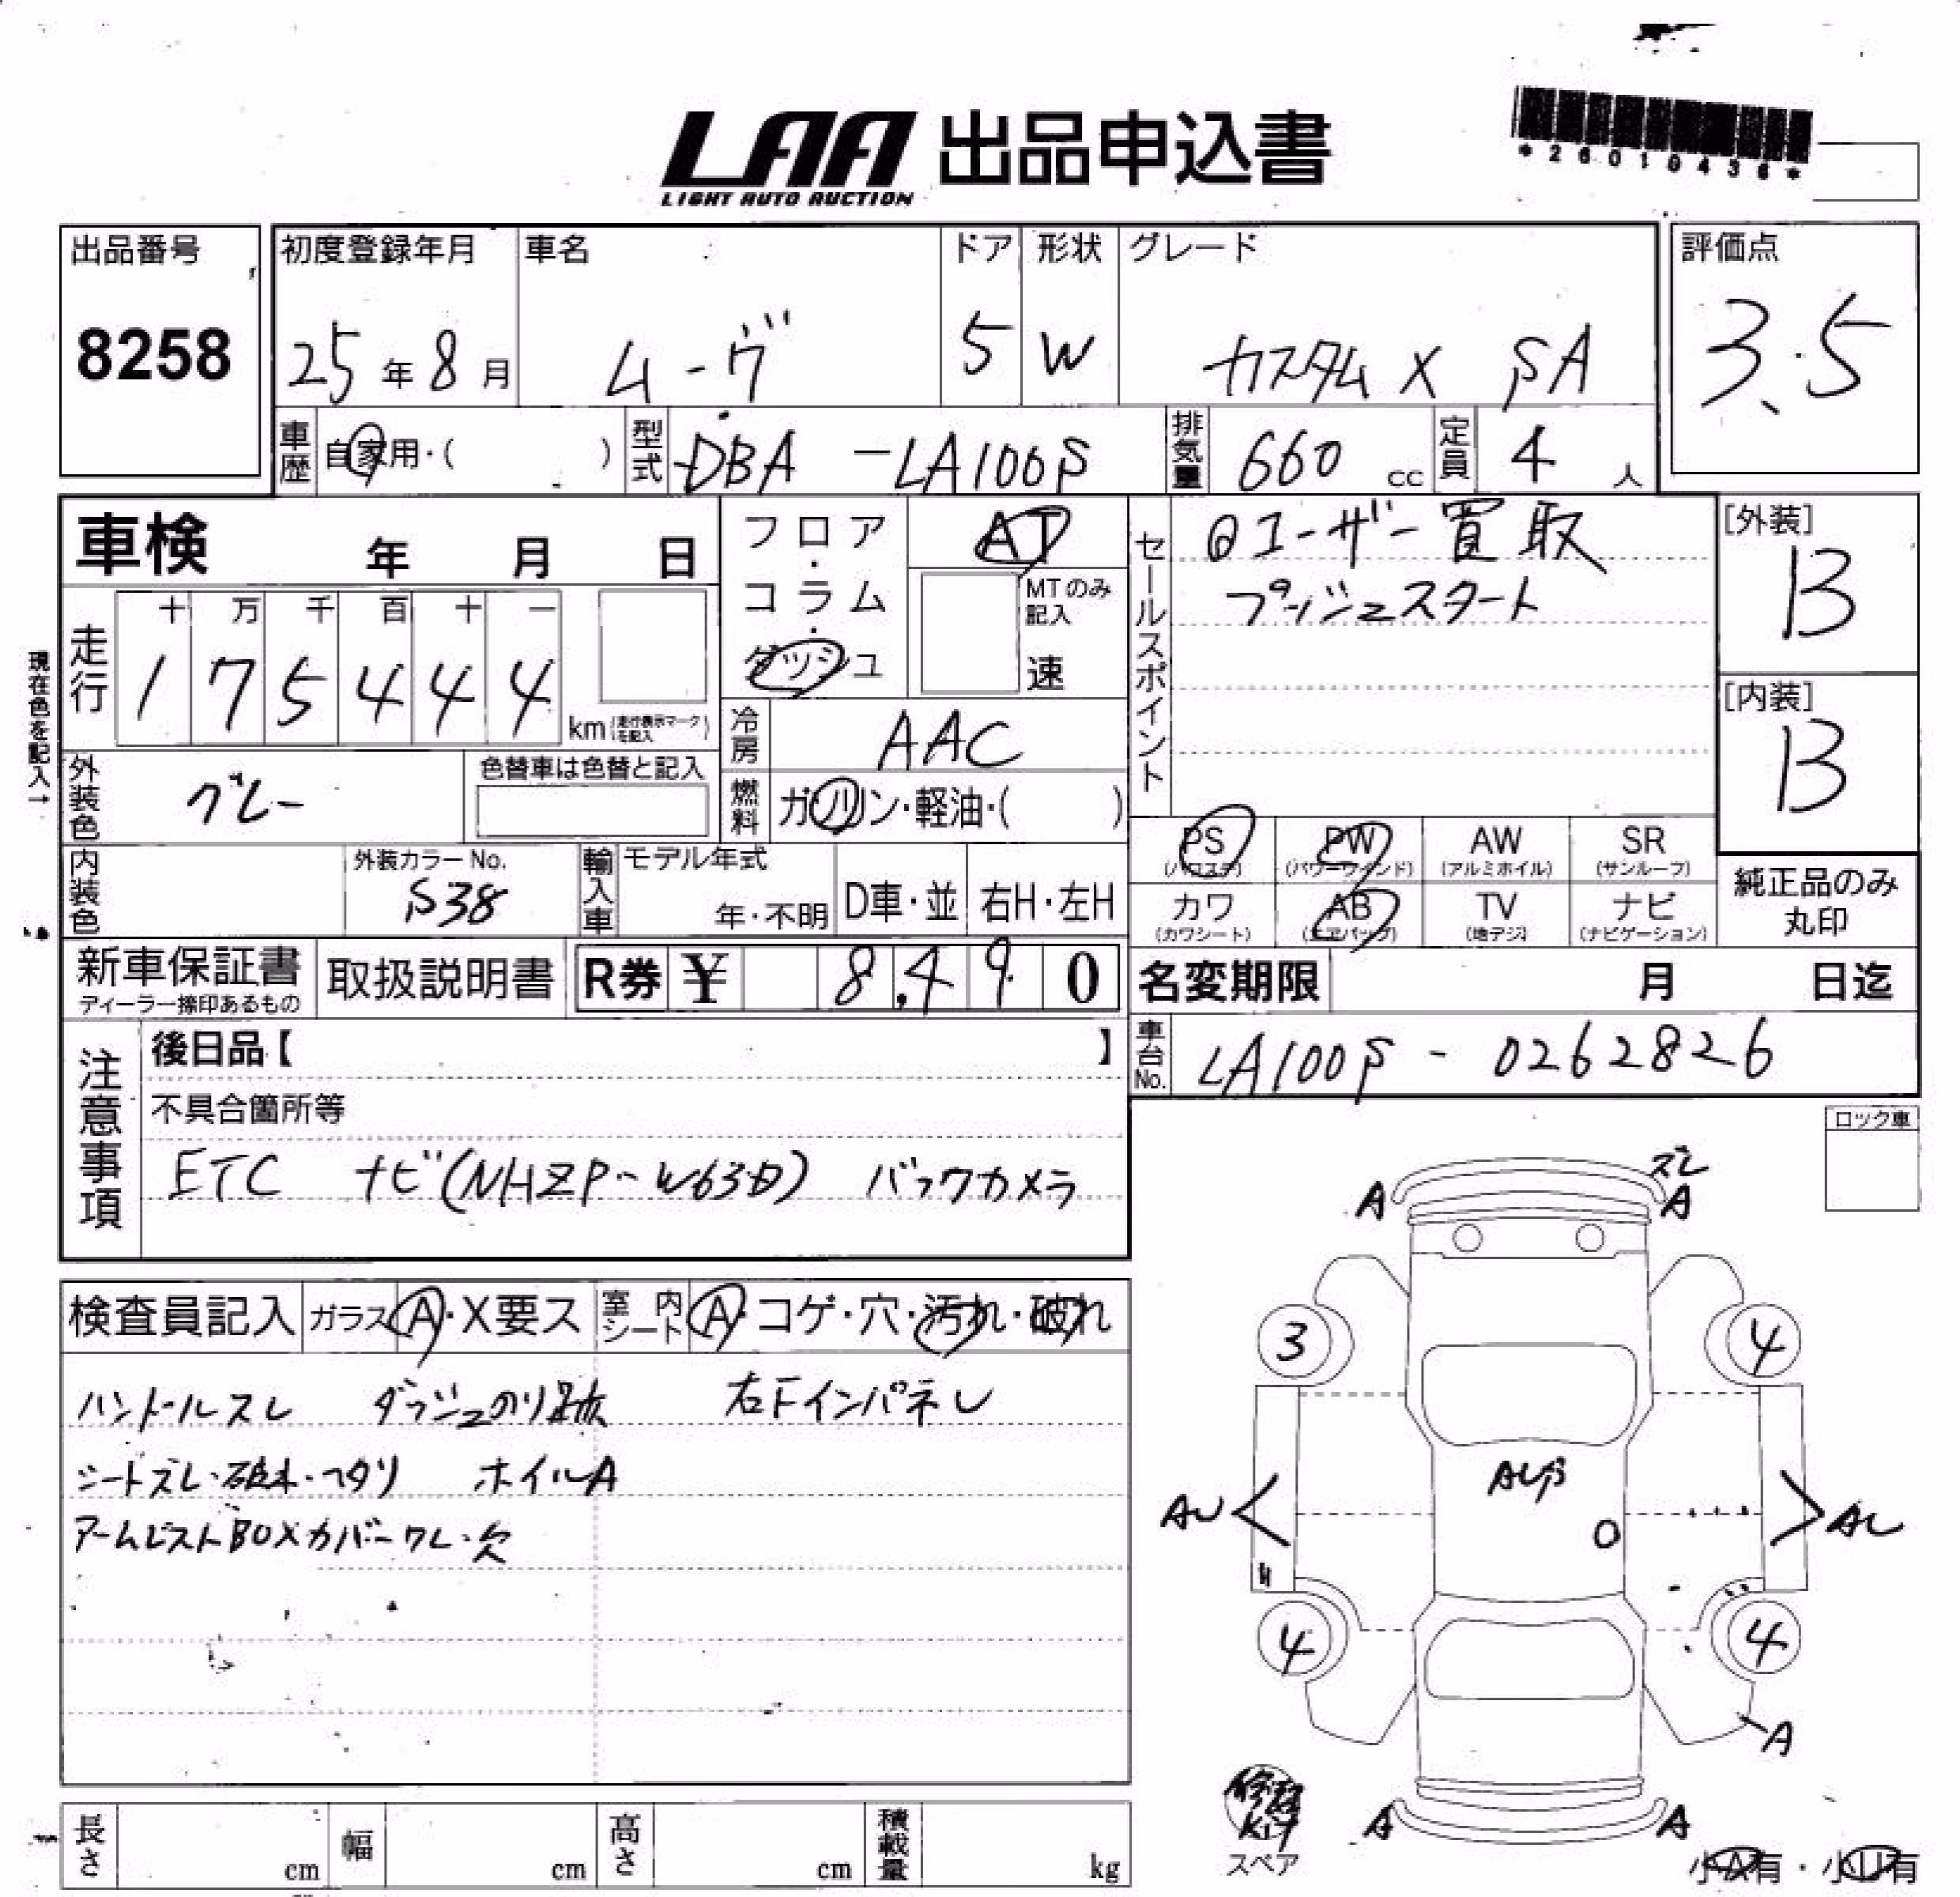 LAA 出品申込書
LIGHT AUTO AUCTION
*26010436*
出品番号
8258
初度登録年月
25年8月
車名
ムーヴ
ドア
5
形状
W
グレード
カスタム X SA
評価点
3.5
車歴
自家用・( )
型式
DBA -LA100S
排気量
660 cc
定員
4 人
車検 年 月 日
走行
十 万 千 百 十 一
1 7 5 4 4 4
km (走行表示マークを記入)
現在色を記入→
外装色
グレー
色替車は色替と記入
内装色
外装カラーNo.
S38
フロア・コラム・ダッシュ
AT
MTのみ記入
速
冷房
AAC
燃料
ガソリン・軽油・( )
輸入車
モデル年式
年・不明
D車・並
右H・左H
セールスポイント
ユーザー買取
プッシュスタート
[外装]
B
[内装]
B
PS (パワステ)
PW (パワーウインド)
AW (アルミホイル)
SR (サンルーフ)
カワ (カワシート)
AB (エアバッグ)
TV (地デジ)
ナビ (ナビゲーション)
純正品のみ
丸印
新車保証書
ディーラー捺印あるもの
取扱説明書
R券 ¥ 8,490
名変期限 月 日迄
車台No.
LA100S - 0262826
注意事項
後日品【 】
不具合箇所等
ETC ナビ(NHZP-W63D) バックカメラ
ロック車
検査員記入
ガラス A・X要ス
室内シート A・コゲ・穴・汚れ・破れ
ハンドルスレ ダッシュのり跡 右Fインパネレ
シートズレ・破れ・ヘタリ ホイルA
アームレストBOXカバーワレ・欠
ズレ
A A
3 4
AUβ
AU AU
4 4
A
A A
修理
Kit
スペア
小A有・小U有
長さ cm
幅 cm
高さ cm
積載量 kg